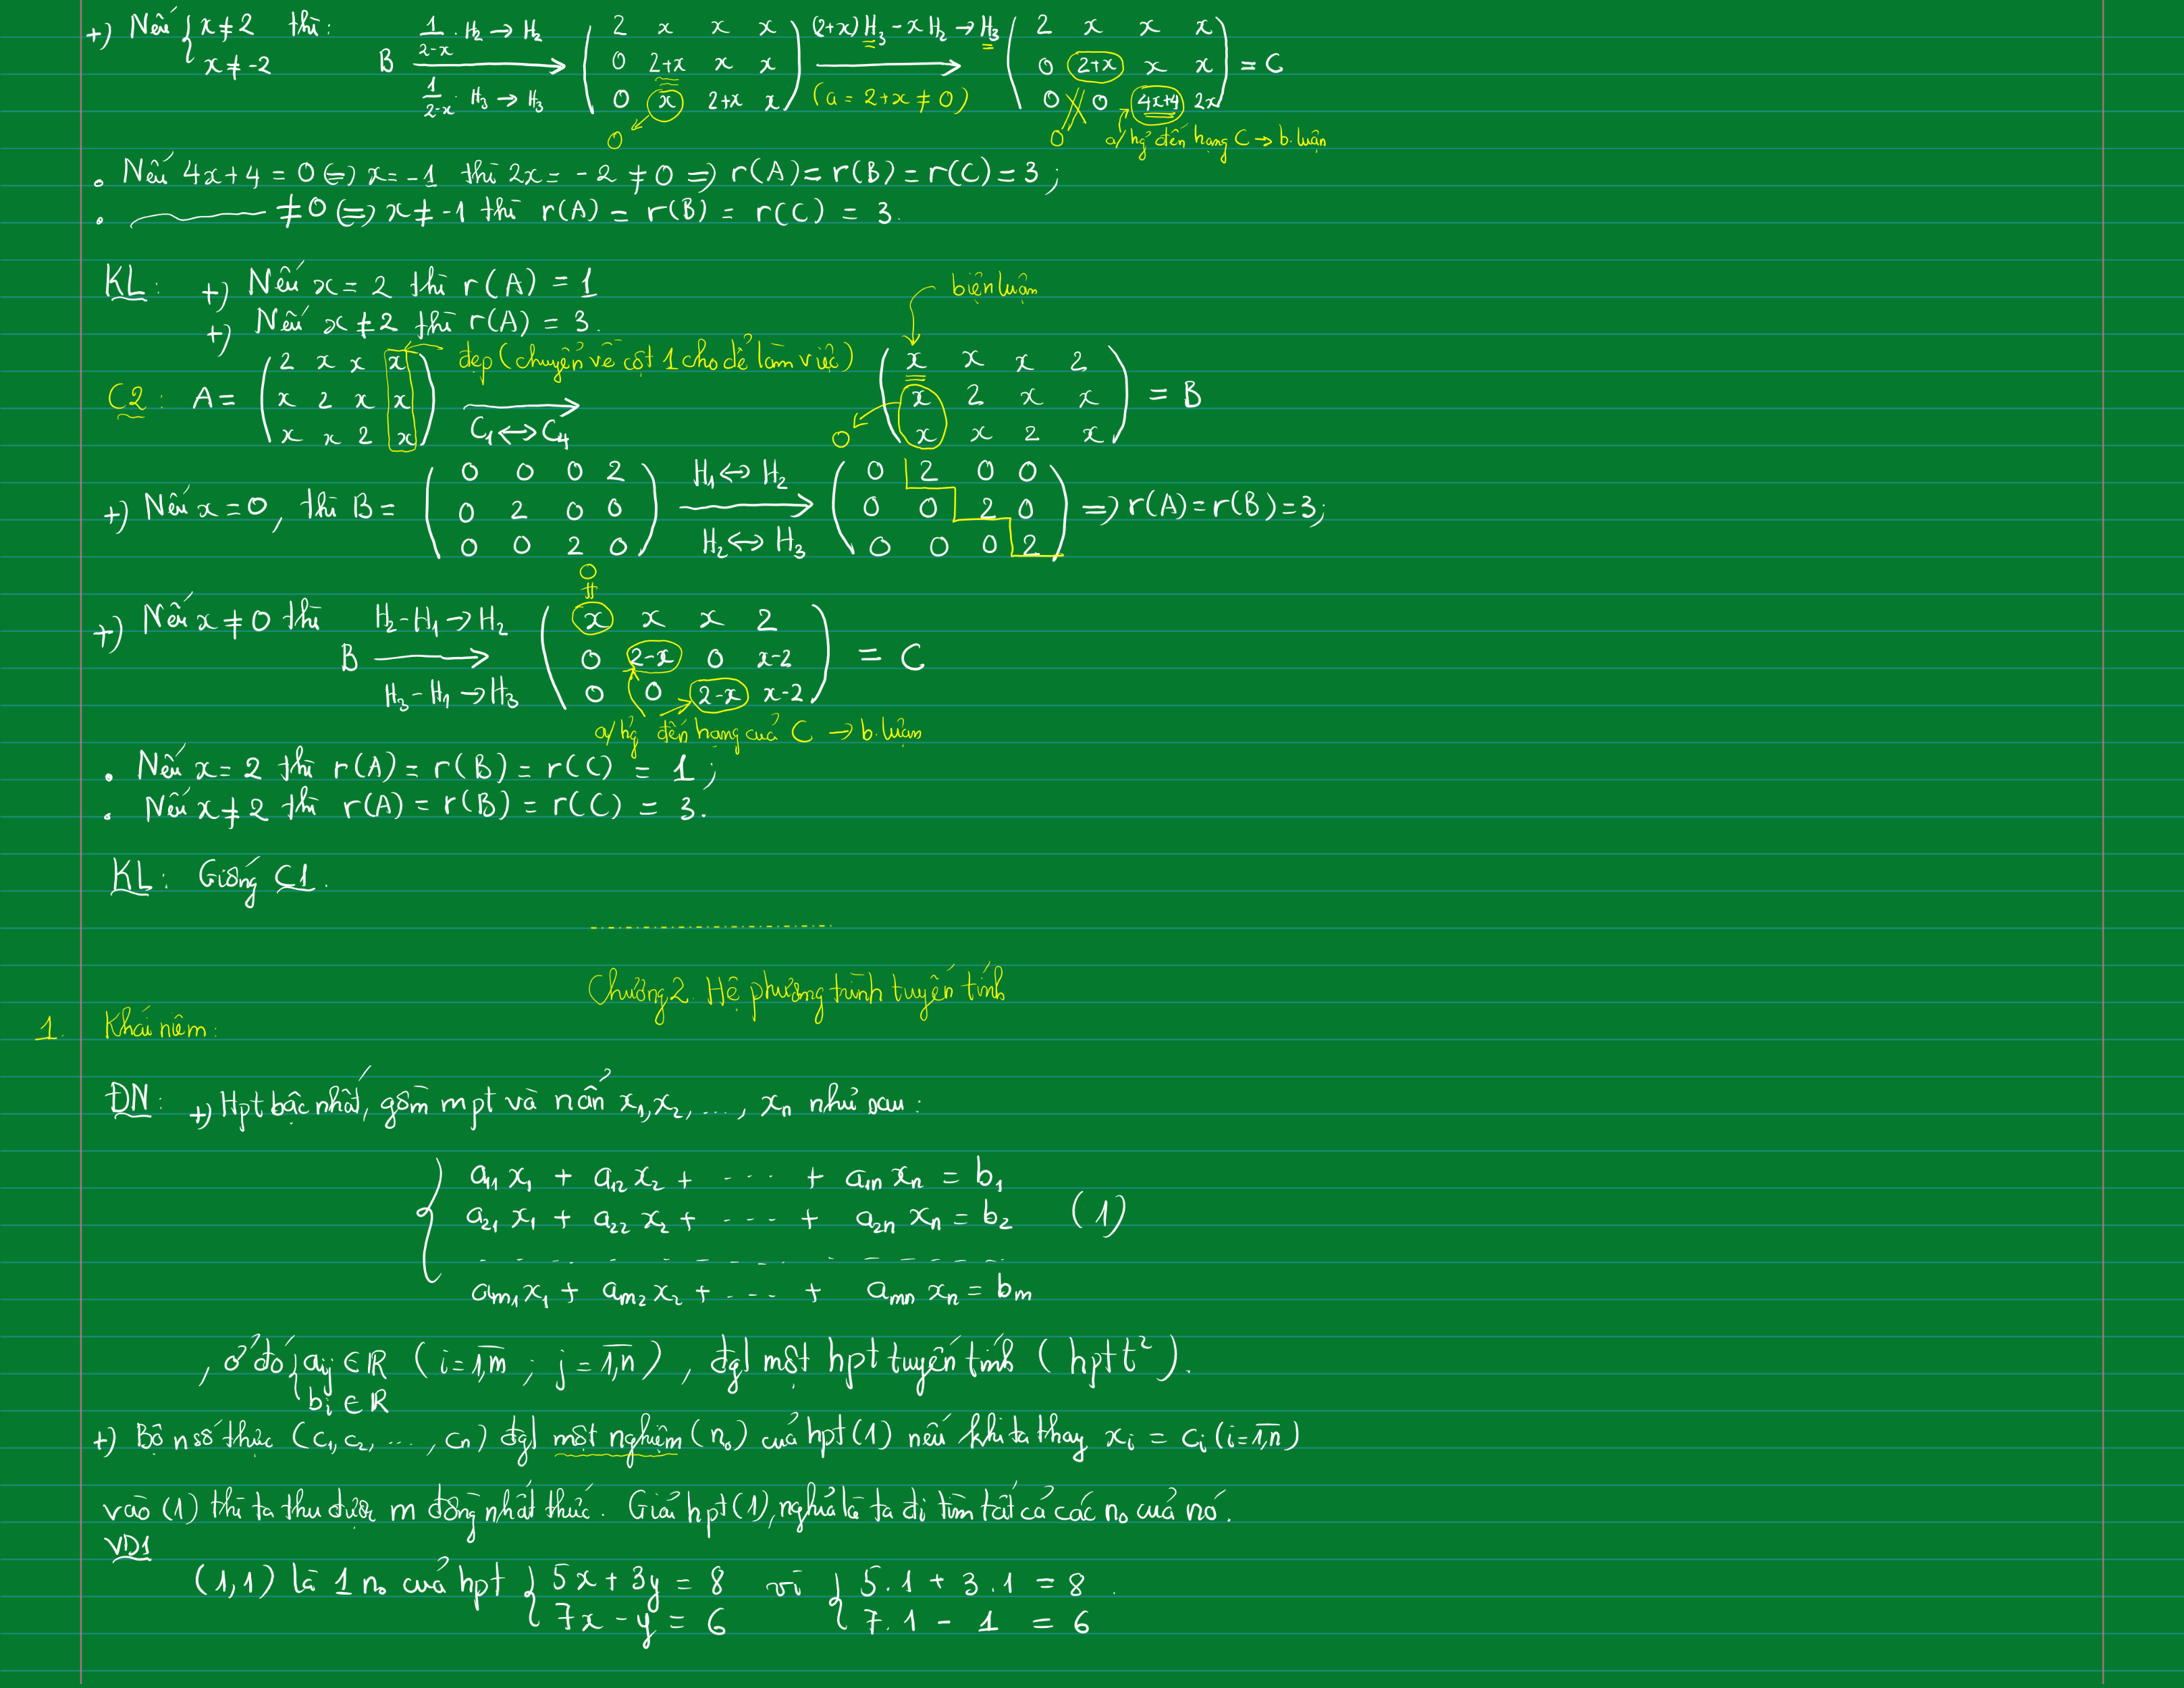 +) Nếu { x ≠ 2 thì:
x ≠ -2
B  1/(2-x) · H₂ → H₂ ; 1/(2-x) · H₃ → H₃  ⟶
( 2 x x x
0 2+x x x
0 x 2+x x )
0
(2+x)H₃ - xH₂ → H₃ ⟶ (a = 2+x ≠ 0)
( 2 x x x
0 2+x x x
0 0 4x+4 2x ) = C
0 a/hg đến hạng C → b.luận
• Nếu 4x+4 = 0 ⇔ x = -1 thì 2x = -2 ≠ 0 ⇒ r(A) = r(B) = r(C) = 3;
• ——— ≠ 0 ⇔ x ≠ -1 thì r(A) = r(B) = r(C) = 3.
KL: +) Nếu x = 2 thì r(A) = 1
+) Nếu x ≠ 2 thì r(A) = 3.
biện luận
C2: A = ( 2 x x x
x 2 x x
x x 2 x )
đẹp (chuyển về cột 1 cho dễ làm việc)
C₁ ↔ C₄ ⟶
( x x x 2
x 2 x x
x x 2 x ) = B
0
+) Nếu x = 0, thì B = ( 0 0 0 2
0 2 0 0
0 0 2 0 )
H₁ ↔ H₂ ; H₂ ↔ H₃ ⟶
( 0 2 0 0
0 0 2 0
0 0 0 2 ) ⇒ r(A) = r(B) = 3;
0 ≠
+) Nếu x ≠ 0 thì B  H₂ - H₁ → H₂ ; H₃ - H₁ → H₃ ⟶
( x x x 2
0 2-x 0 x-2
0 0 2-x x-2 ) = C
a/hg đến hạng của C → b.luận
• Nếu x = 2 thì r(A) = r(B) = r(C) = 1;
• Nếu x ≠ 2 thì r(A) = r(B) = r(C) = 3.
KL: Giống C1.
Chương 2. Hệ phương trình tuyến tính
1. Khái niệm:
ĐN: +) Hpt bậc nhất, gồm m pt và n ẩn x₁, x₂, ..., xₙ như sau:
{ a₁₁x₁ + a₁₂x₂ + ···· + a₁ₙxₙ = b₁
a₂₁x₁ + a₂₂x₂ + ···· + a₂ₙxₙ = b₂ (1)
.....................
aₘ₁x₁ + aₘ₂x₂ + ···· + aₘₙxₙ = bₘ
, ở đó { aᵢⱼ ∈ ℝ (i = 1,m ; j = 1,n), đgl một hpt tuyến tính (hptt²).
bᵢ ∈ ℝ
+) Bộ n số thực (c₁, c₂, ..., cₙ) đgl một nghiệm (n₀) của hpt (1) nếu khi ta thay xᵢ = cᵢ (i = 1,n)
vào (1) thì ta thu được m đồng nhất thức. Giải hpt (1), nghĩa là ta đi tìm tất cả các n₀ của nó.
VD1
(1,1) là 1 n₀ của hpt { 5x + 3y = 8 vì { 5.1 + 3.1 = 8.
7x - y = 6    7.1 - 1 = 6